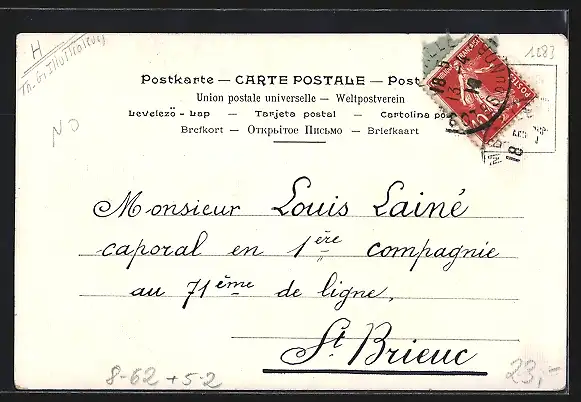 H
1083
Postkarte — CARTE POSTALE — Post
Union postale universelle — Weltpostverein
Levelező - Lap — Tarjeta postal — Cartolina pos
Brefkort — Открытое Письмо — Briefkaart
ND
Monsieur Louis Lainé
caporal en 1ère compagnie
au 71ème de ligne,
St Brieuc
8-62 + 5-2
23,-